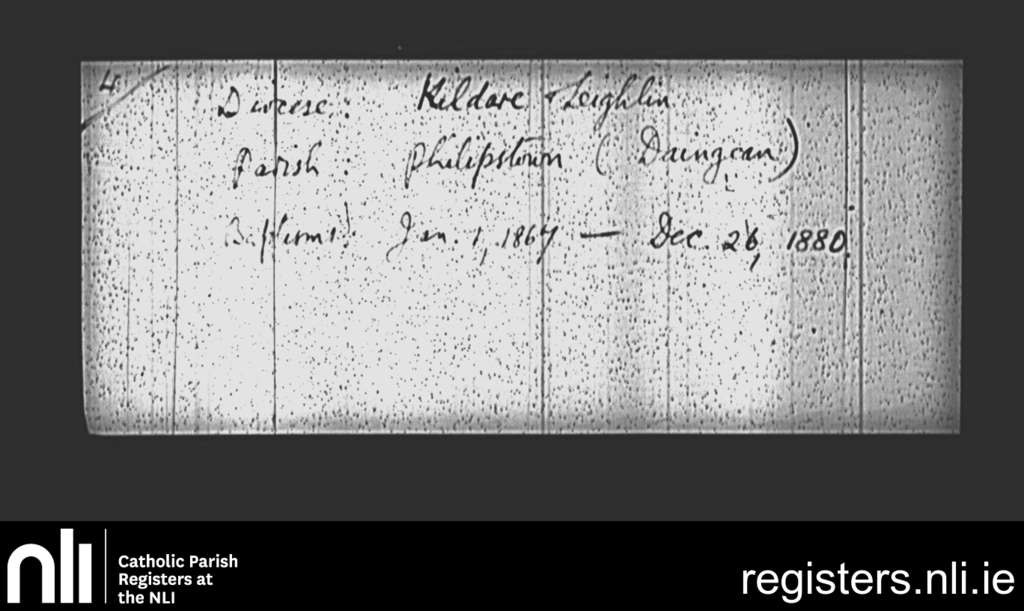 4
Diocese: Kildare & Leighlin
Parish: Philipstown (Daingean)
Baptisms: Jan. 1, 1867 — Dec. 26, 1880.
nli
Catholic Parish
Registers at
the NLI
registers.nli.ie